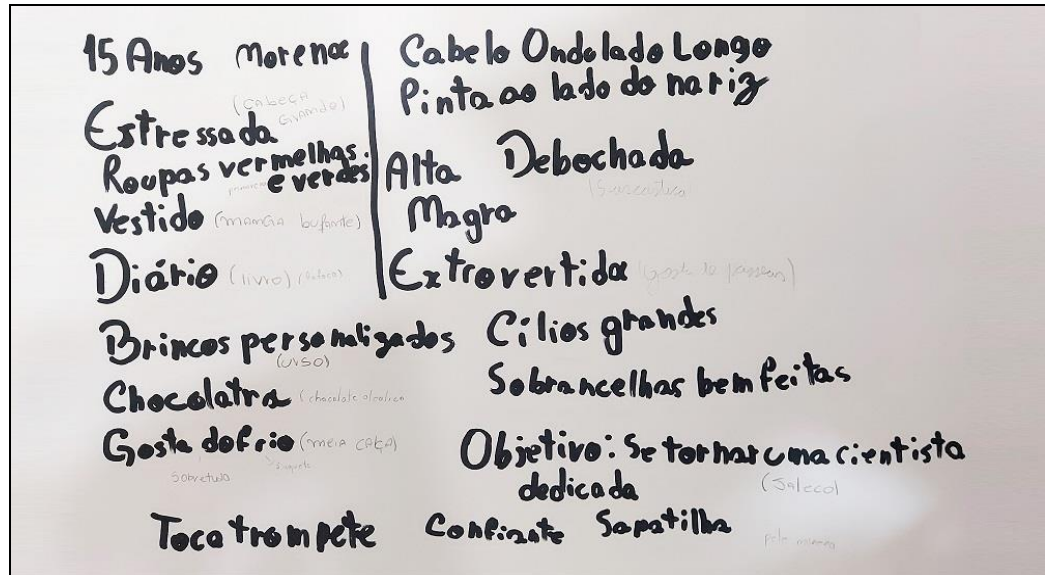 15 Anos Morena
(CABEÇA GRANDE)
Estressada
Roupas vermelhas
e verdes
Vestido (MANGA bufante)
Diário (livro)
Cabelo Ondulado Longo
Pinta ao lado do nariz
Alta Debochada
(Sarcástica)
Magra
Extrovertida (gosta de passear)
Brincos personalizados Cílios grandes
(URSO)
Chocolatra (chocolate alcolico
Sobrancelhas bem feitas
Gosta do frio (MEIA CALÇA)
Sobretudo
Objetivo: Se tornar uma cientista
dedicada (Jaleco)
Toca trompete Confiante Sapatilha